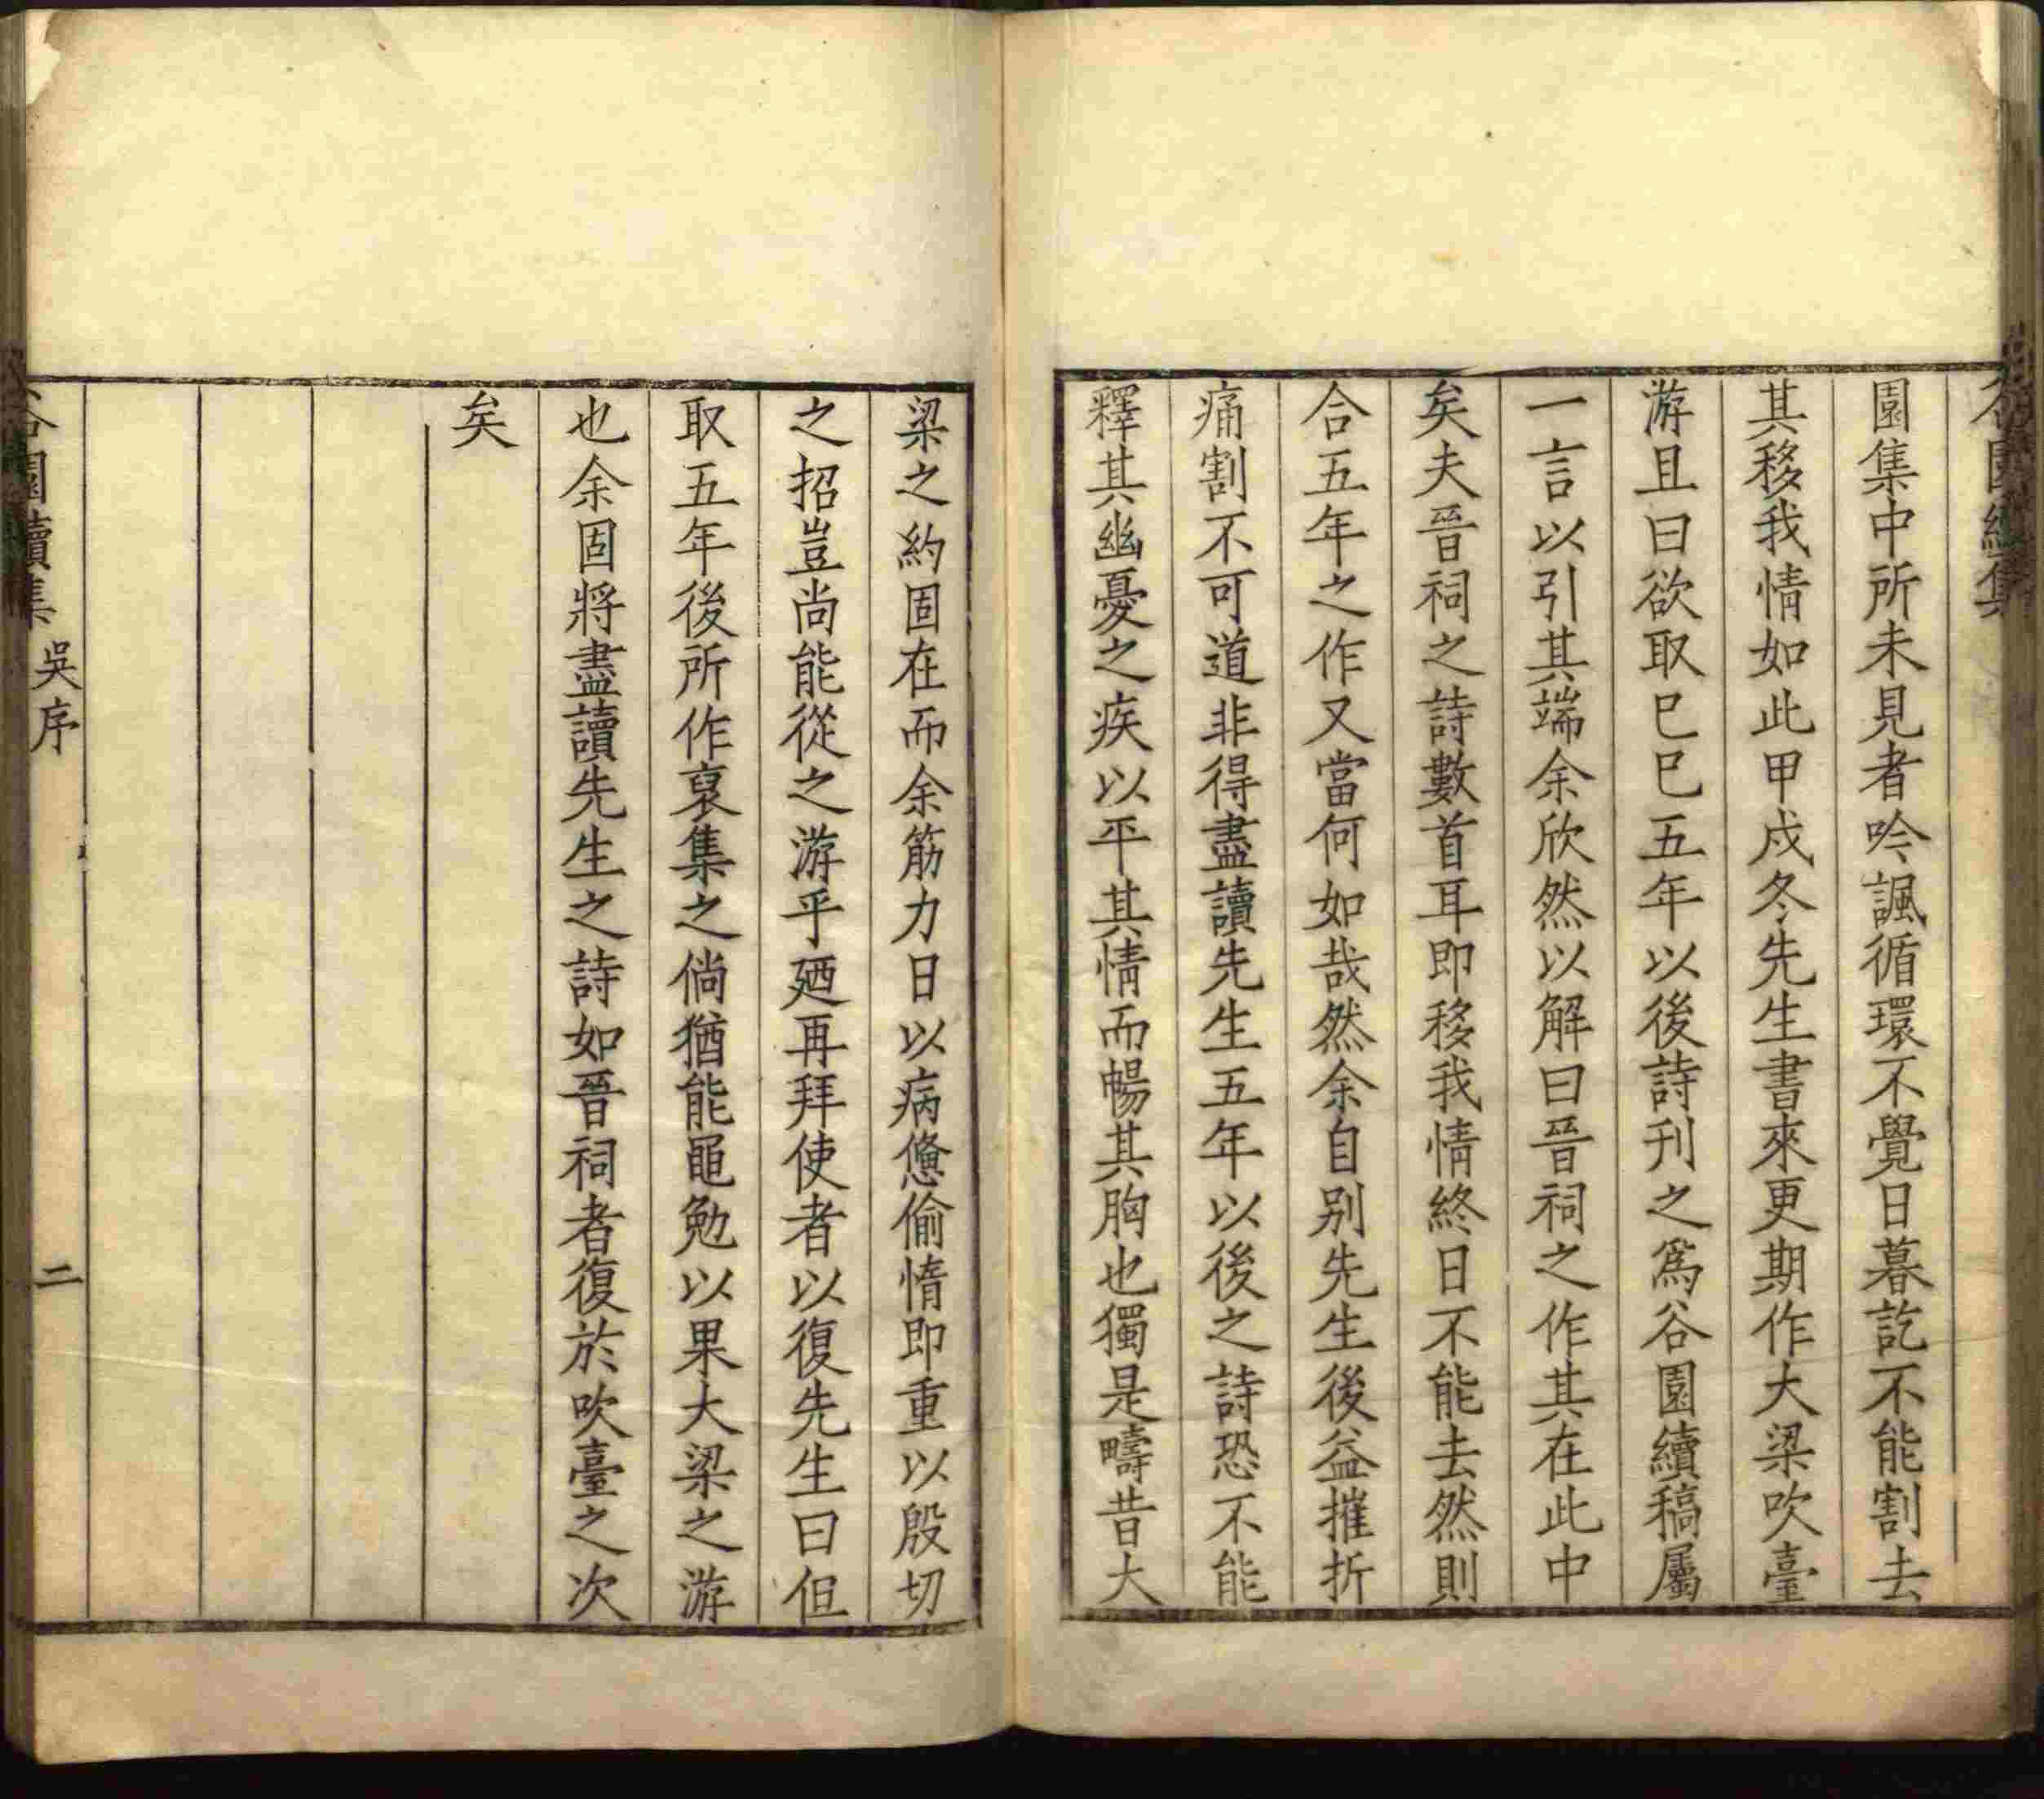 谷園續集
園集中所未見者吟諷循環不覺日暮訖不能割去
其移我情如此甲戍冬先生書來更期作大梁吹臺
游且曰欲取已巳五年以後詩刊之爲谷園續稿屬
一言以引其端余欣然以解曰晉祠之作其在此中
矣夫晉祠之詩數首耳即移我情終日不能去然則
合五年之作又當何如哉然余自別先生後益摧折
痛割不可道非得盡讀先生五年以後之詩恐不能
釋其幽憂之疾以平其情而暢其胸也獨是疇昔大
梁之約固在而余筋力日以病憊偷惰即重以殷切
之招豈尚能從之游乎廼再拜使者以復先生曰但
取五年後所作裒集之倘猶能黽勉以果大梁之游
也余固將盡讀先生之詩如晉祠者復於吹臺之次
矣
谷園續集 吳序 二